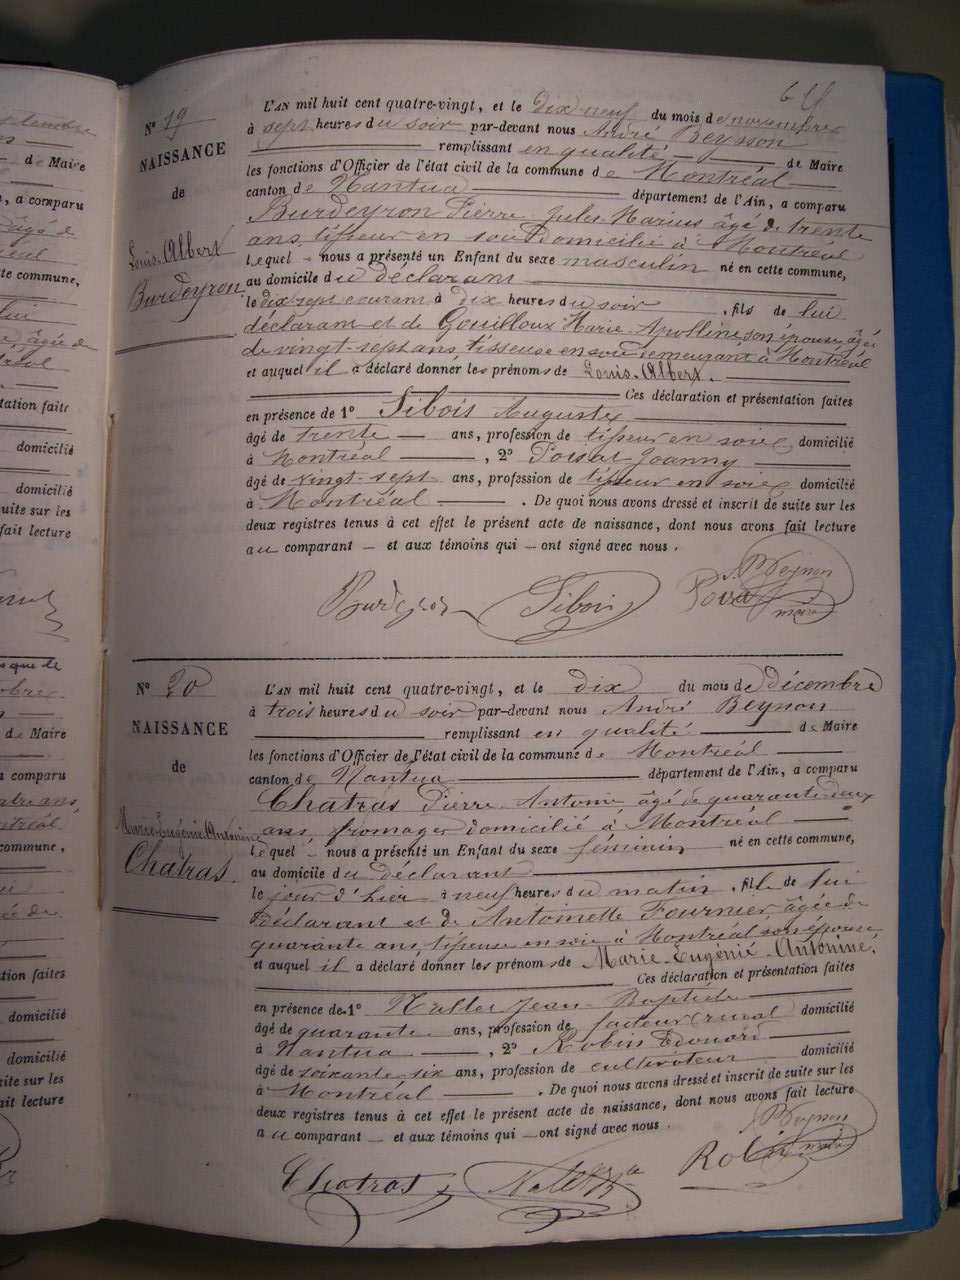 Nº 19
NAISSANCE
de
Louis-Albert
Burdeyron
L'AN mil huit cent quatre-vingt, et le Dix neuf du mois de novembre
à sept heures du soir par-devant nous André Beynon
remplissant en qualité de Maire
les fonctions d'Officier de l'état civil de la commune de Montréal
canton de Nantua département de l'Ain, a comparu
Burdeyron Pierre Jules Marius âgé de trente
ans, tisseur en soie domicilié à Montréal
lequel nous a présenté un Enfant du sexe masculin né en cette commune,
au domicile du déclarant
le dix sept courant à dix heures du soir, fils de lui
déclarant et de Gouilloux Marie Apolline son épouse, âgée
de vingt-sept ans, tisseuse en soie demeurant à Montréal
et auquel il a déclaré donner les prénoms de Louis-Albert.
Ces déclaration et présentation faites
en présence de 1º Sibois Auguste
âgé de trente ans, profession de tisseur en soie domicilié
à Montréal, 2º Joanny
âgé de vingt-sept ans, profession de tisseur en soie domicilié
à Montréal. De quoi nous avons dressé et inscrit de suite sur les
deux registres tenus à cet effet le présent acte de naissance, dont nous avons fait lecture
au comparant et aux témoins qui ont signé avec nous.
Burdeyron Sibois Beynon
maire
Nº 20
NAISSANCE
de
Marie-Eugénie-Antonine
Chatras
L'AN mil huit cent quatre-vingt, et le dix du mois de décembre
à trois heures du soir par-devant nous André Beynon
remplissant en qualité de Maire
les fonctions d'Officier de l'état civil de la commune de Montréal
canton de Nantua département de l'Ain, a comparu
Chatras Pierre Antoine âgé de quarante-deux
ans, fromager domicilié à Montréal
lequel nous a présenté un Enfant du sexe féminin né en cette commune,
au domicile du déclarant
le jour d'hier à neuf heures du matin, fille de lui
déclarant et de Antoinette Fournier, âgée de
quarante ans, tisseuse en soie à Montréal, son épouse
et auquel il a déclaré donner les prénoms de Marie-Eugénie-Antonine.
Ces déclaration et présentation faites
en présence de 1º Jean-Baptiste
âgé de quarante ans, profession de facteur rural domicilié
à Nantua, 2º Robin Edouard
âgé de soixante six ans, profession de cultivateur domicilié
à Montréal. De quoi nous avons dressé et inscrit de suite sur les
deux registres tenus à cet effet le présent acte de naissance, dont nous avons fait lecture
au comparant et aux témoins qui ont signé avec nous
Chatras Robin Beynon
maire